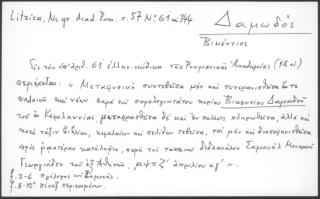 Litzica, Ms gr. Acad. Rom. σ. 57 Nº 61 αἱ 344
Δαμωδός
Βικέντιος
Εἰς τὸν ὑπ' ἀριθ. 61 ἑλλην. κώδικα τῆς Ρουμανικῆς Ἀκαδημίας (18 αἰ.)
περιέχεται: « Μεταφυσικὴ συντεθεῖσα μὲν καὶ συνερανισθεῖσα ἔκ τε
παλαιῶν καὶ νέων παρὰ τοῦ σοφολογιωτάτου κυρίου Βικεντίου Δαμωδοῦ
τοῦ ἐκ Κεφαλληνίας, μεταφρασθεῖσα δὲ καὶ ἐν πολλοῖς πληρωθεῖσα, ἀλλὰ καὶ
κατὰ τάξιν βιβλίων, κεφαλαίων καὶ σελίδων τεθεῖσα, ναὶ μὴν καὶ διασαφηνισθεῖσα
πρὸς ῥᾳοτέραν κατάληψιν, παρὰ τοῦ ταπεινοῦ διδασκάλου Σαμουὴλ Μοναχοῦ
Γεωργιάδου τοῦ ἐξ Ἀθηνῶν. ͵αψπζʹ ἀπριλίου κγʹ ».
φ. 2-6 Πρόλογος τοῦ Σαμουήλ.
φ. 8-12ᵛ πίναξ περιεχομένων.